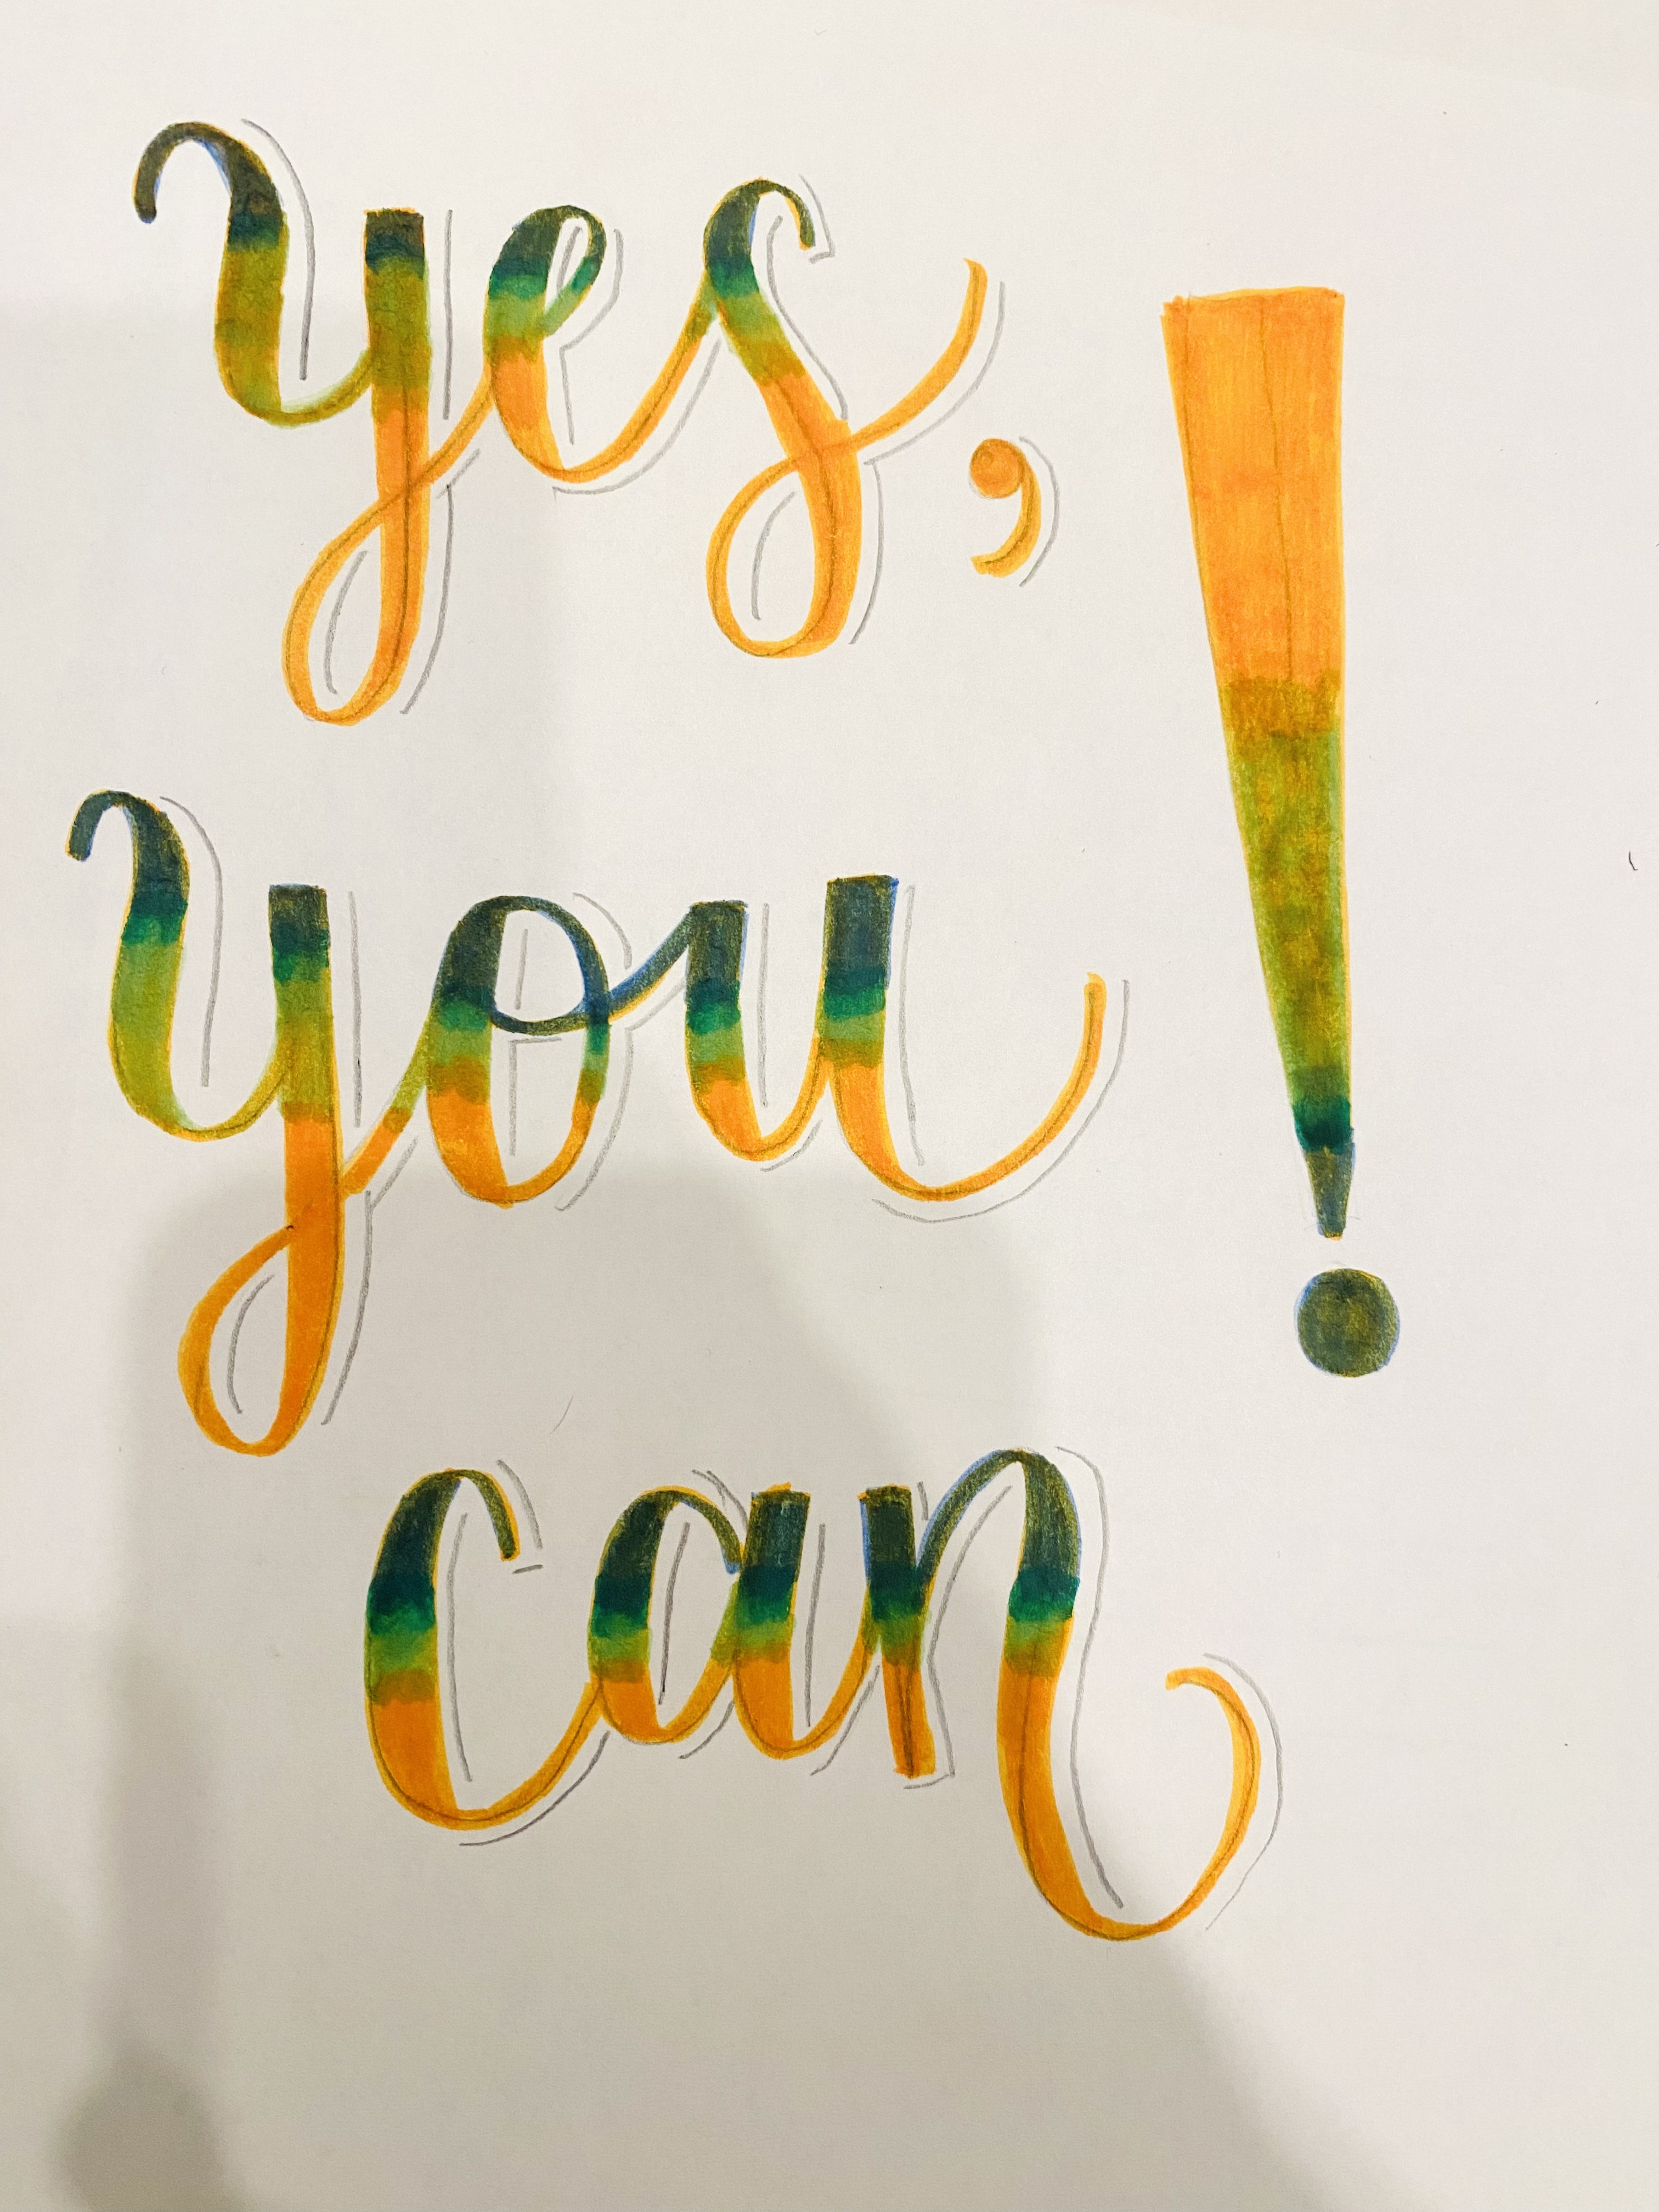 yes,
you
can!